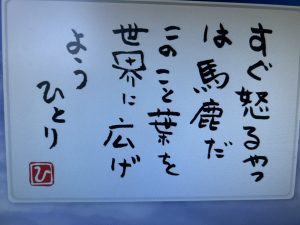 すぐ怒るやつ
は馬鹿だ
このこと葉を
世界に広げ
よう
ひとり
ひ